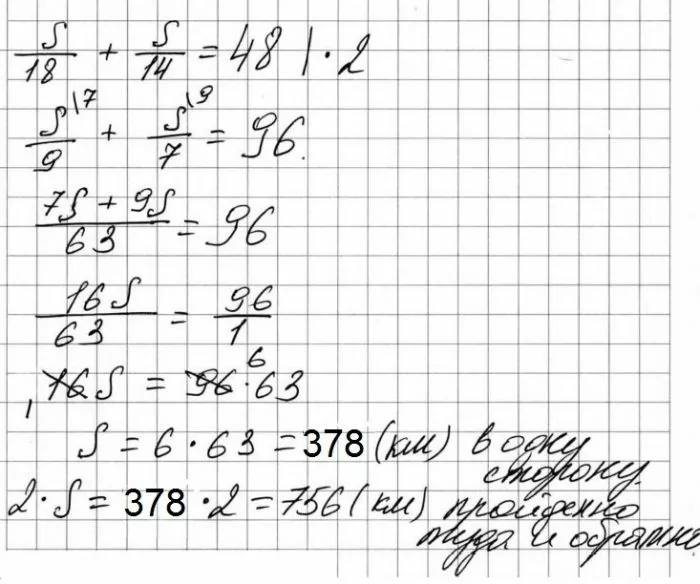 S/18 + S/14 = 48 | · 2
S\7/9 + S\9/7 = 96.
7S + 9S/63 = 96
16S/63 = 96/1
1 16 S = 96 6 · 63
S = 6 · 63 = 378 (км) в одну
сторону.
2 · S = 378 · 2 = 756 (км) пройденно
туда и обратно